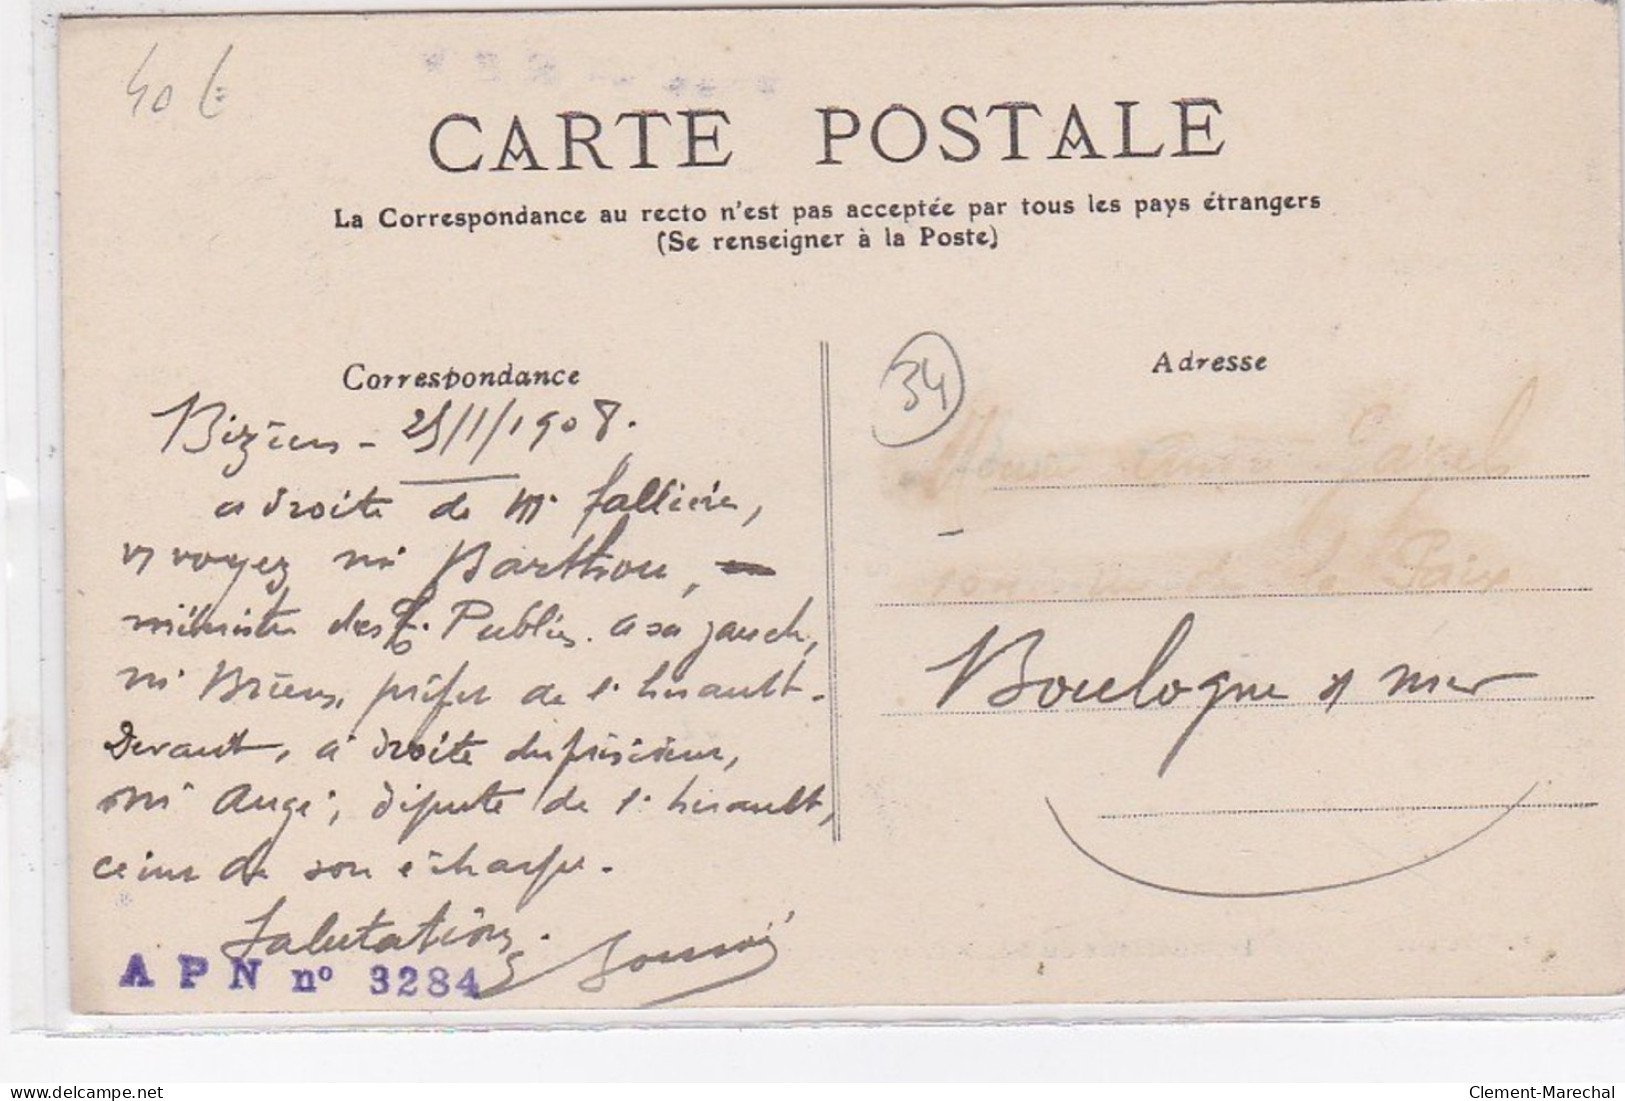 40 €
CARTE POSTALE
La Correspondance au recto n'est pas acceptée par tous les pays étrangers
(Se renseigner à la Poste)
Correspondance
Adresse
34
Béziers - 25/1/1908.
à droite de Mr fallière,
vs voyez Mr Barthou,
ministre des T. Publics. a sa gauche,
Mr préfet de l'hérault.
Devant, à droite du président,
Mr Augé, député de l'hérault,
ceint de son écharpe.
Salutations.
de la Paix
Boulogne s/ mer
A P N nº 3284
Clement-Marechal
delcampe.net